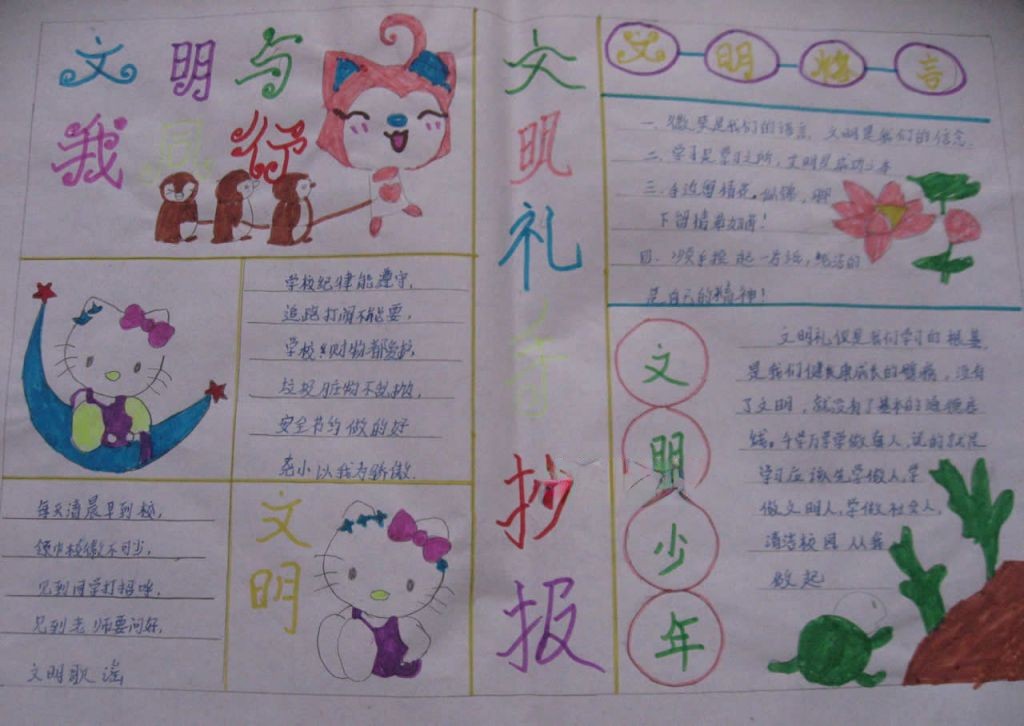 文明与
我同行
学校纪律能遵守,
追路打闹不能要,
学校的财物都爱护,
垃圾脏物不乱抛,
安全节约做的好
从小以我为骄傲.
每天清晨早到校,
领巾校徽不可少,
见到同学打招呼,
见到老师要问好,
文明歌谣
文明
文明礼
抄报
文明格言
一、微笑是我们的语言,文明是我们的信念.
二、学习是
文明是成功之本
三、手边留情花似锦,脚
下留情
四、顺手捡起一片纸,纯洁的
是自己的精神!
文明少年
文明礼仪是我们学习的根基
是我们健康成长的臂膀,没有
了文明,就没有了基本的道德底
线。千学万学学做真人,说的就是
学习应该先学做人,学
做文明人,学做社会人,
清洁校园从我
做起